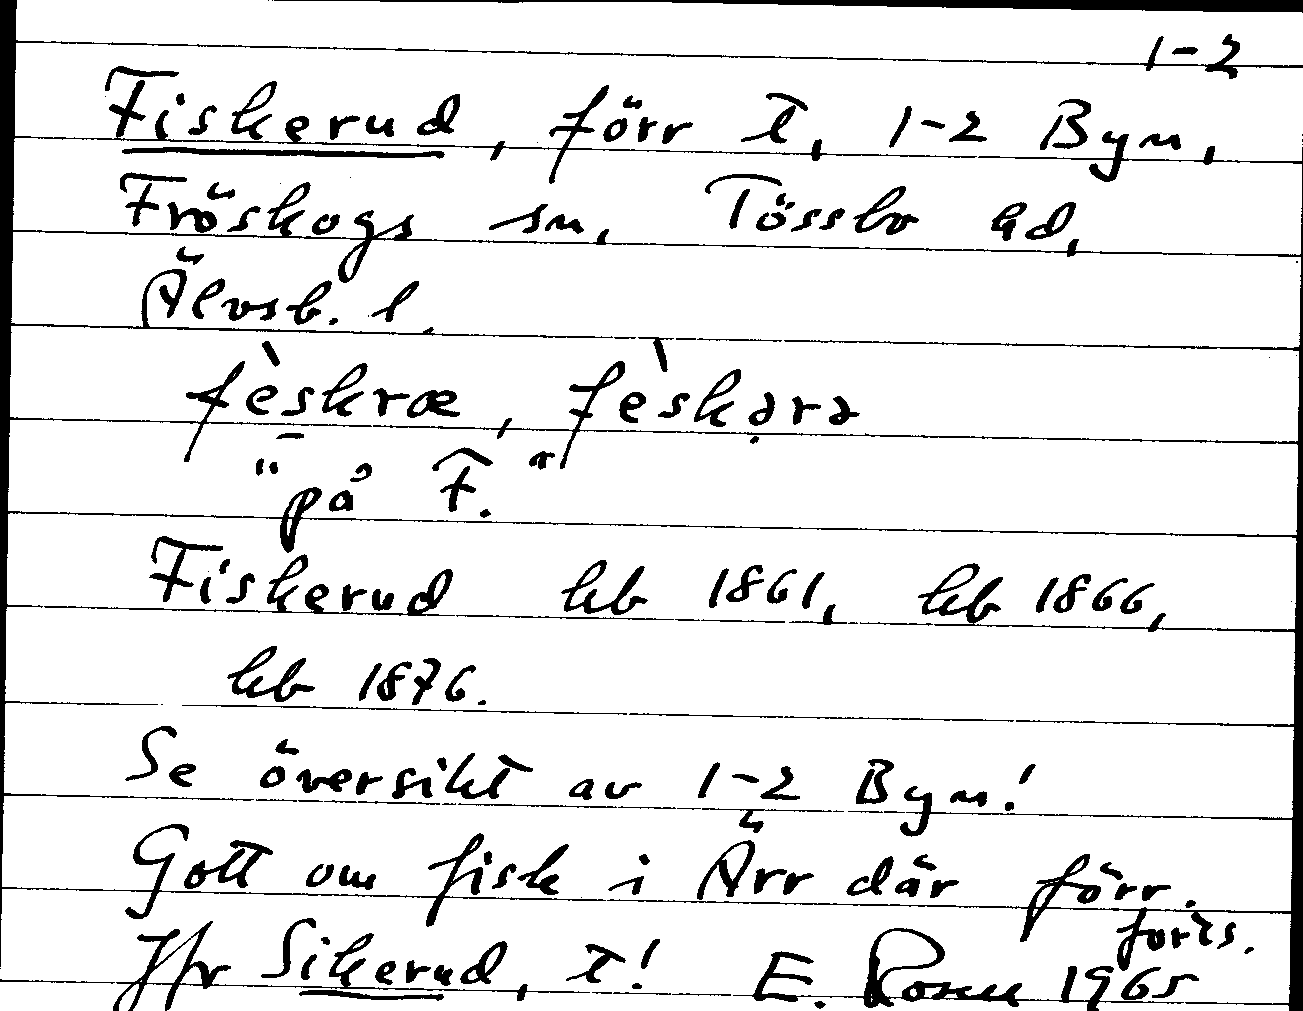 1-2
Fiskerud, förr t, 1-2 Byn,
Fröskogs sn, Tössbo hd,
Älvsb. l.
fèskræ, fèskərə
"på F."
Fiskerud hb 1861, hb 1866,
hb 1876.
Se översikt av 1-2 Byn!
Gott om fisk i Ärr där förr.
forts.
Jfr Sikerud, t! E. Rosell 1965